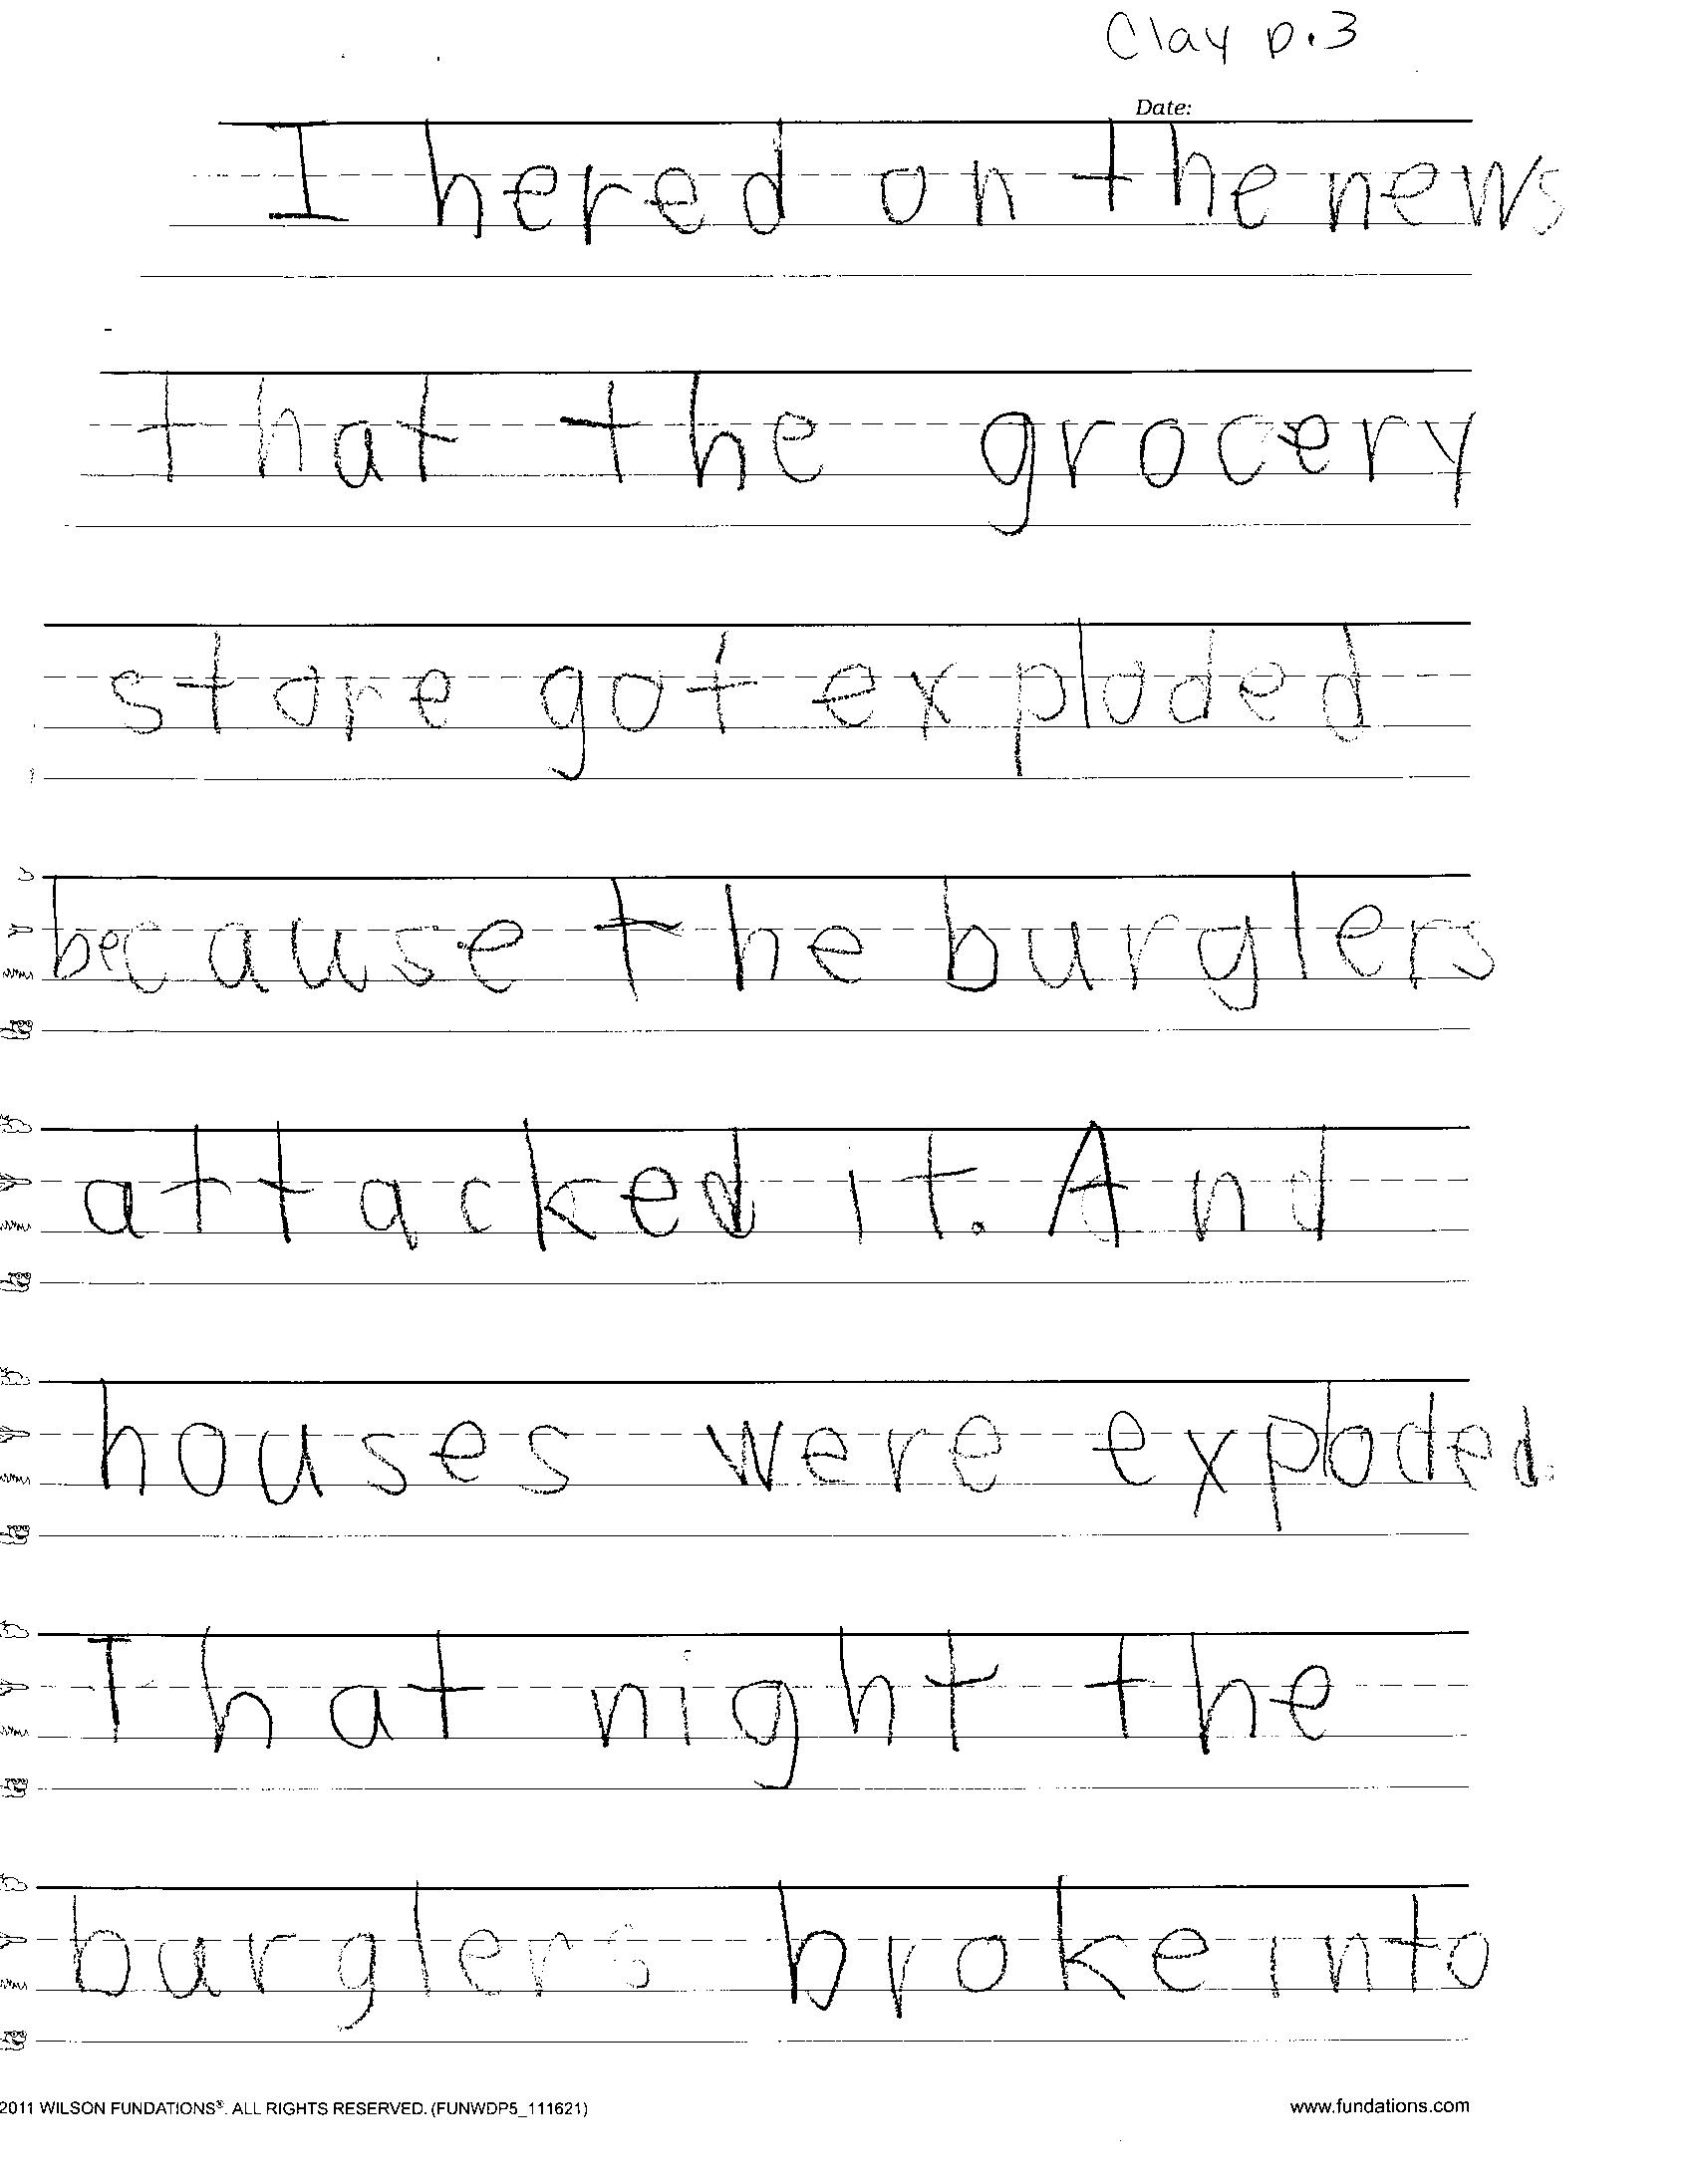 Clay p.3
Date:
I hered on the news
that the grocery
store got exploded
because the burglers
attacked it. And
houses were exploded.
That night the
burglers broke into
2011 WILSON FUNDATIONS®. ALL RIGHTS RESERVED. (FUNWDP5_111621)
www.fundations.com